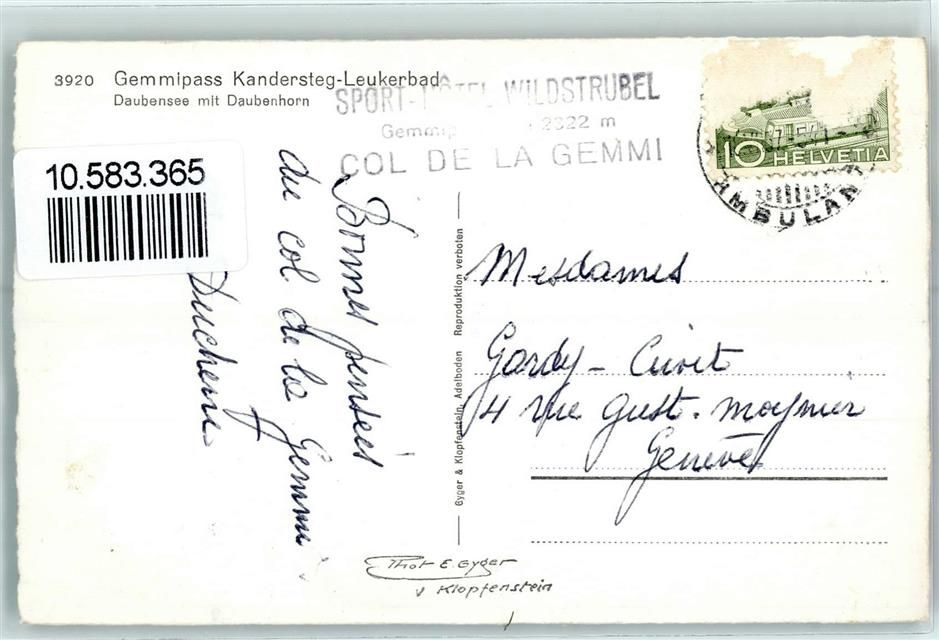 3920 Gemmipass Kandersteg-Leukerbad
Daubensee mit Daubenhorn
SPORT-HÔTEL WILDSTRUBEL
2322 m
COL DE LA GEMMI
10 HELVETIA
AMBULANT
10.583.365
Bonnes pensées
du col de la Gemmi
Gyger & Klopfenstein, Adelboden Reproduktion verboten
Mesdames
Gardy - Civet
4 rue Gust. Moynier
Genève
Phot E. Gyger
Klopfenstein